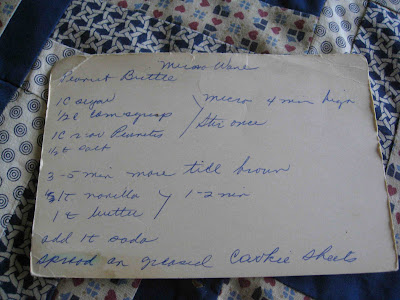 Micro Wave
Peanut Brittle
1C sugar
1/2C corn syrup
micro 4 min high
stir once
1C raw Peanuts
1/2t salt
3-5 min more till brown
1/2t vanilla
1-2 min
1t butter
add 1t soda
spread on greased Cookie Sheets